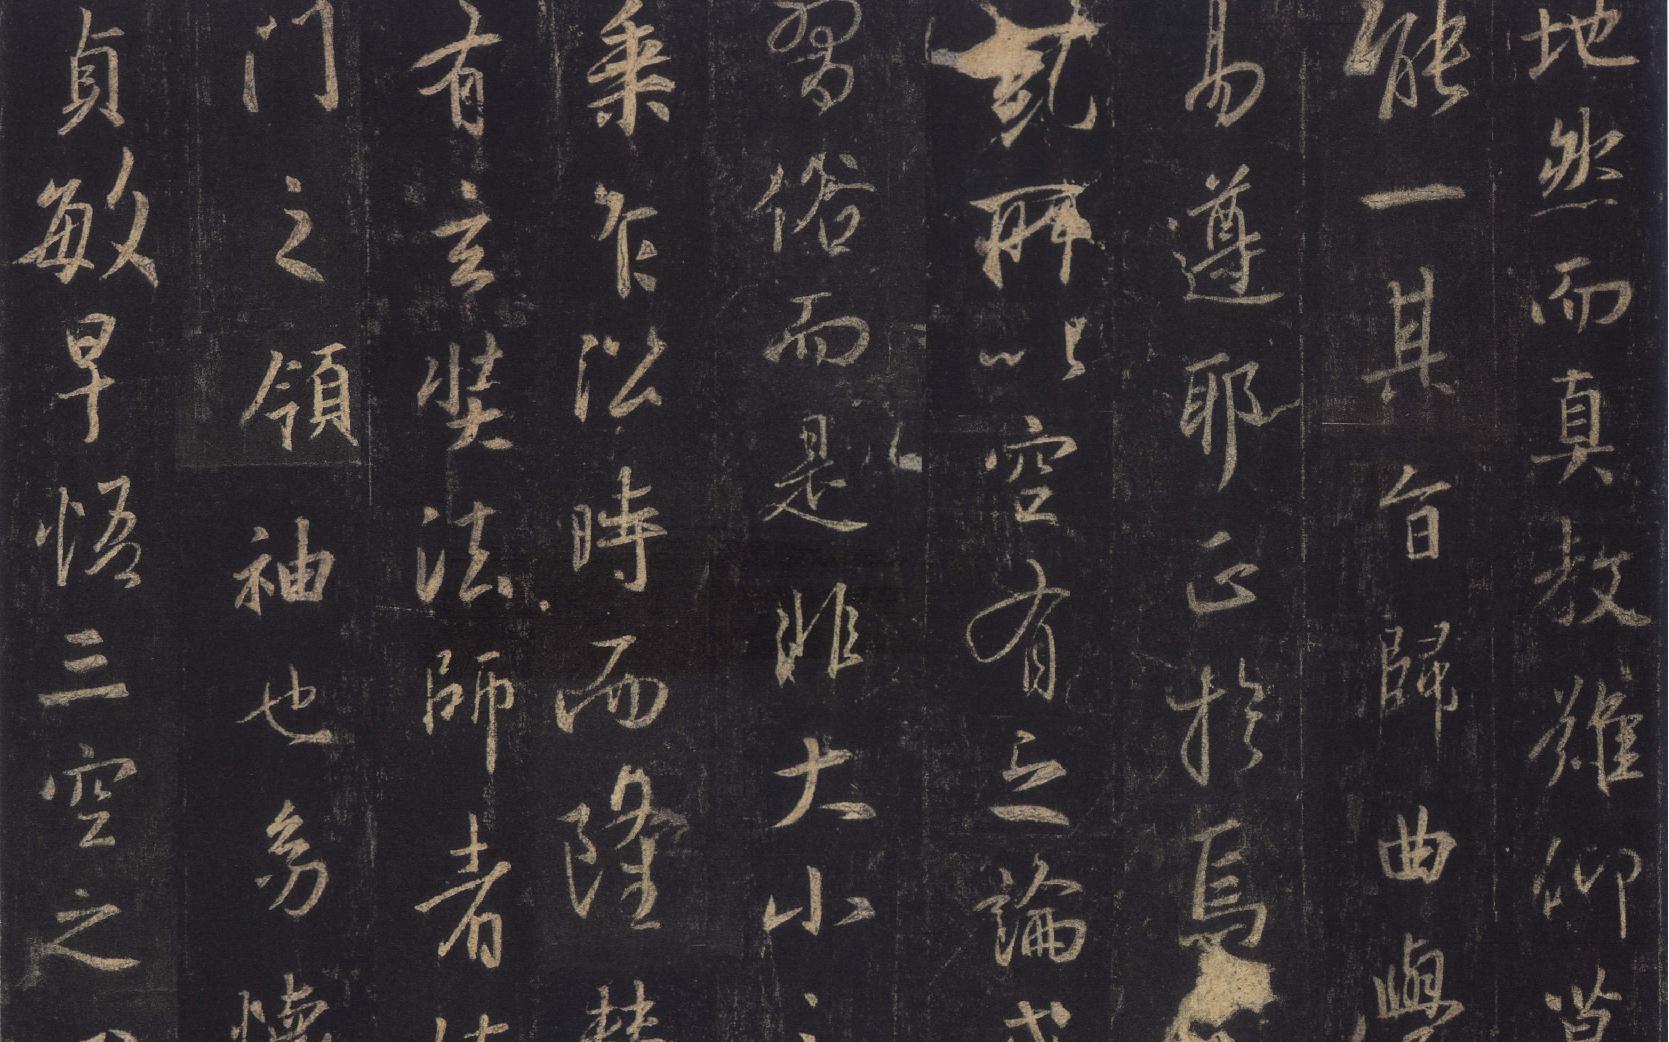 地然而真教難仰莫
能一其旨歸曲學
易遵耶正於焉
所以空有之論或
習俗而是非大小
乘乍沿時而隆替
有玄奘法師者法
門之領袖也幼懷
貞敏早悟三空之